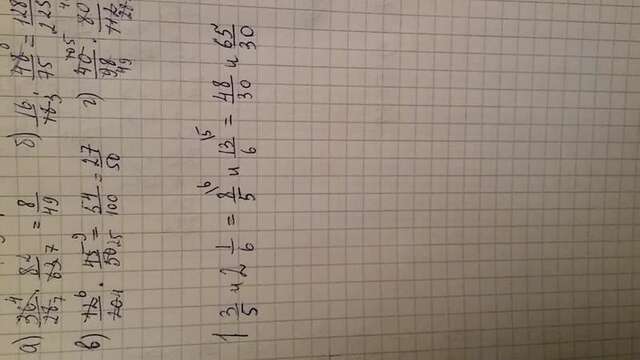 а) 36⁴/28₇ · 8²/63₇ = 8/49 б) 16/18₃ · 48⁸/75 = 128/225
в) 12⁶/20₄ · 45⁹/50₂₅ = 54/100 = 27/50 г) 40/98₄₉ · 80/112₂₈
1 3/5 и 2 1/6 = 8\⁶/5 и 13\⁵/6 = 48/30 и 65/30